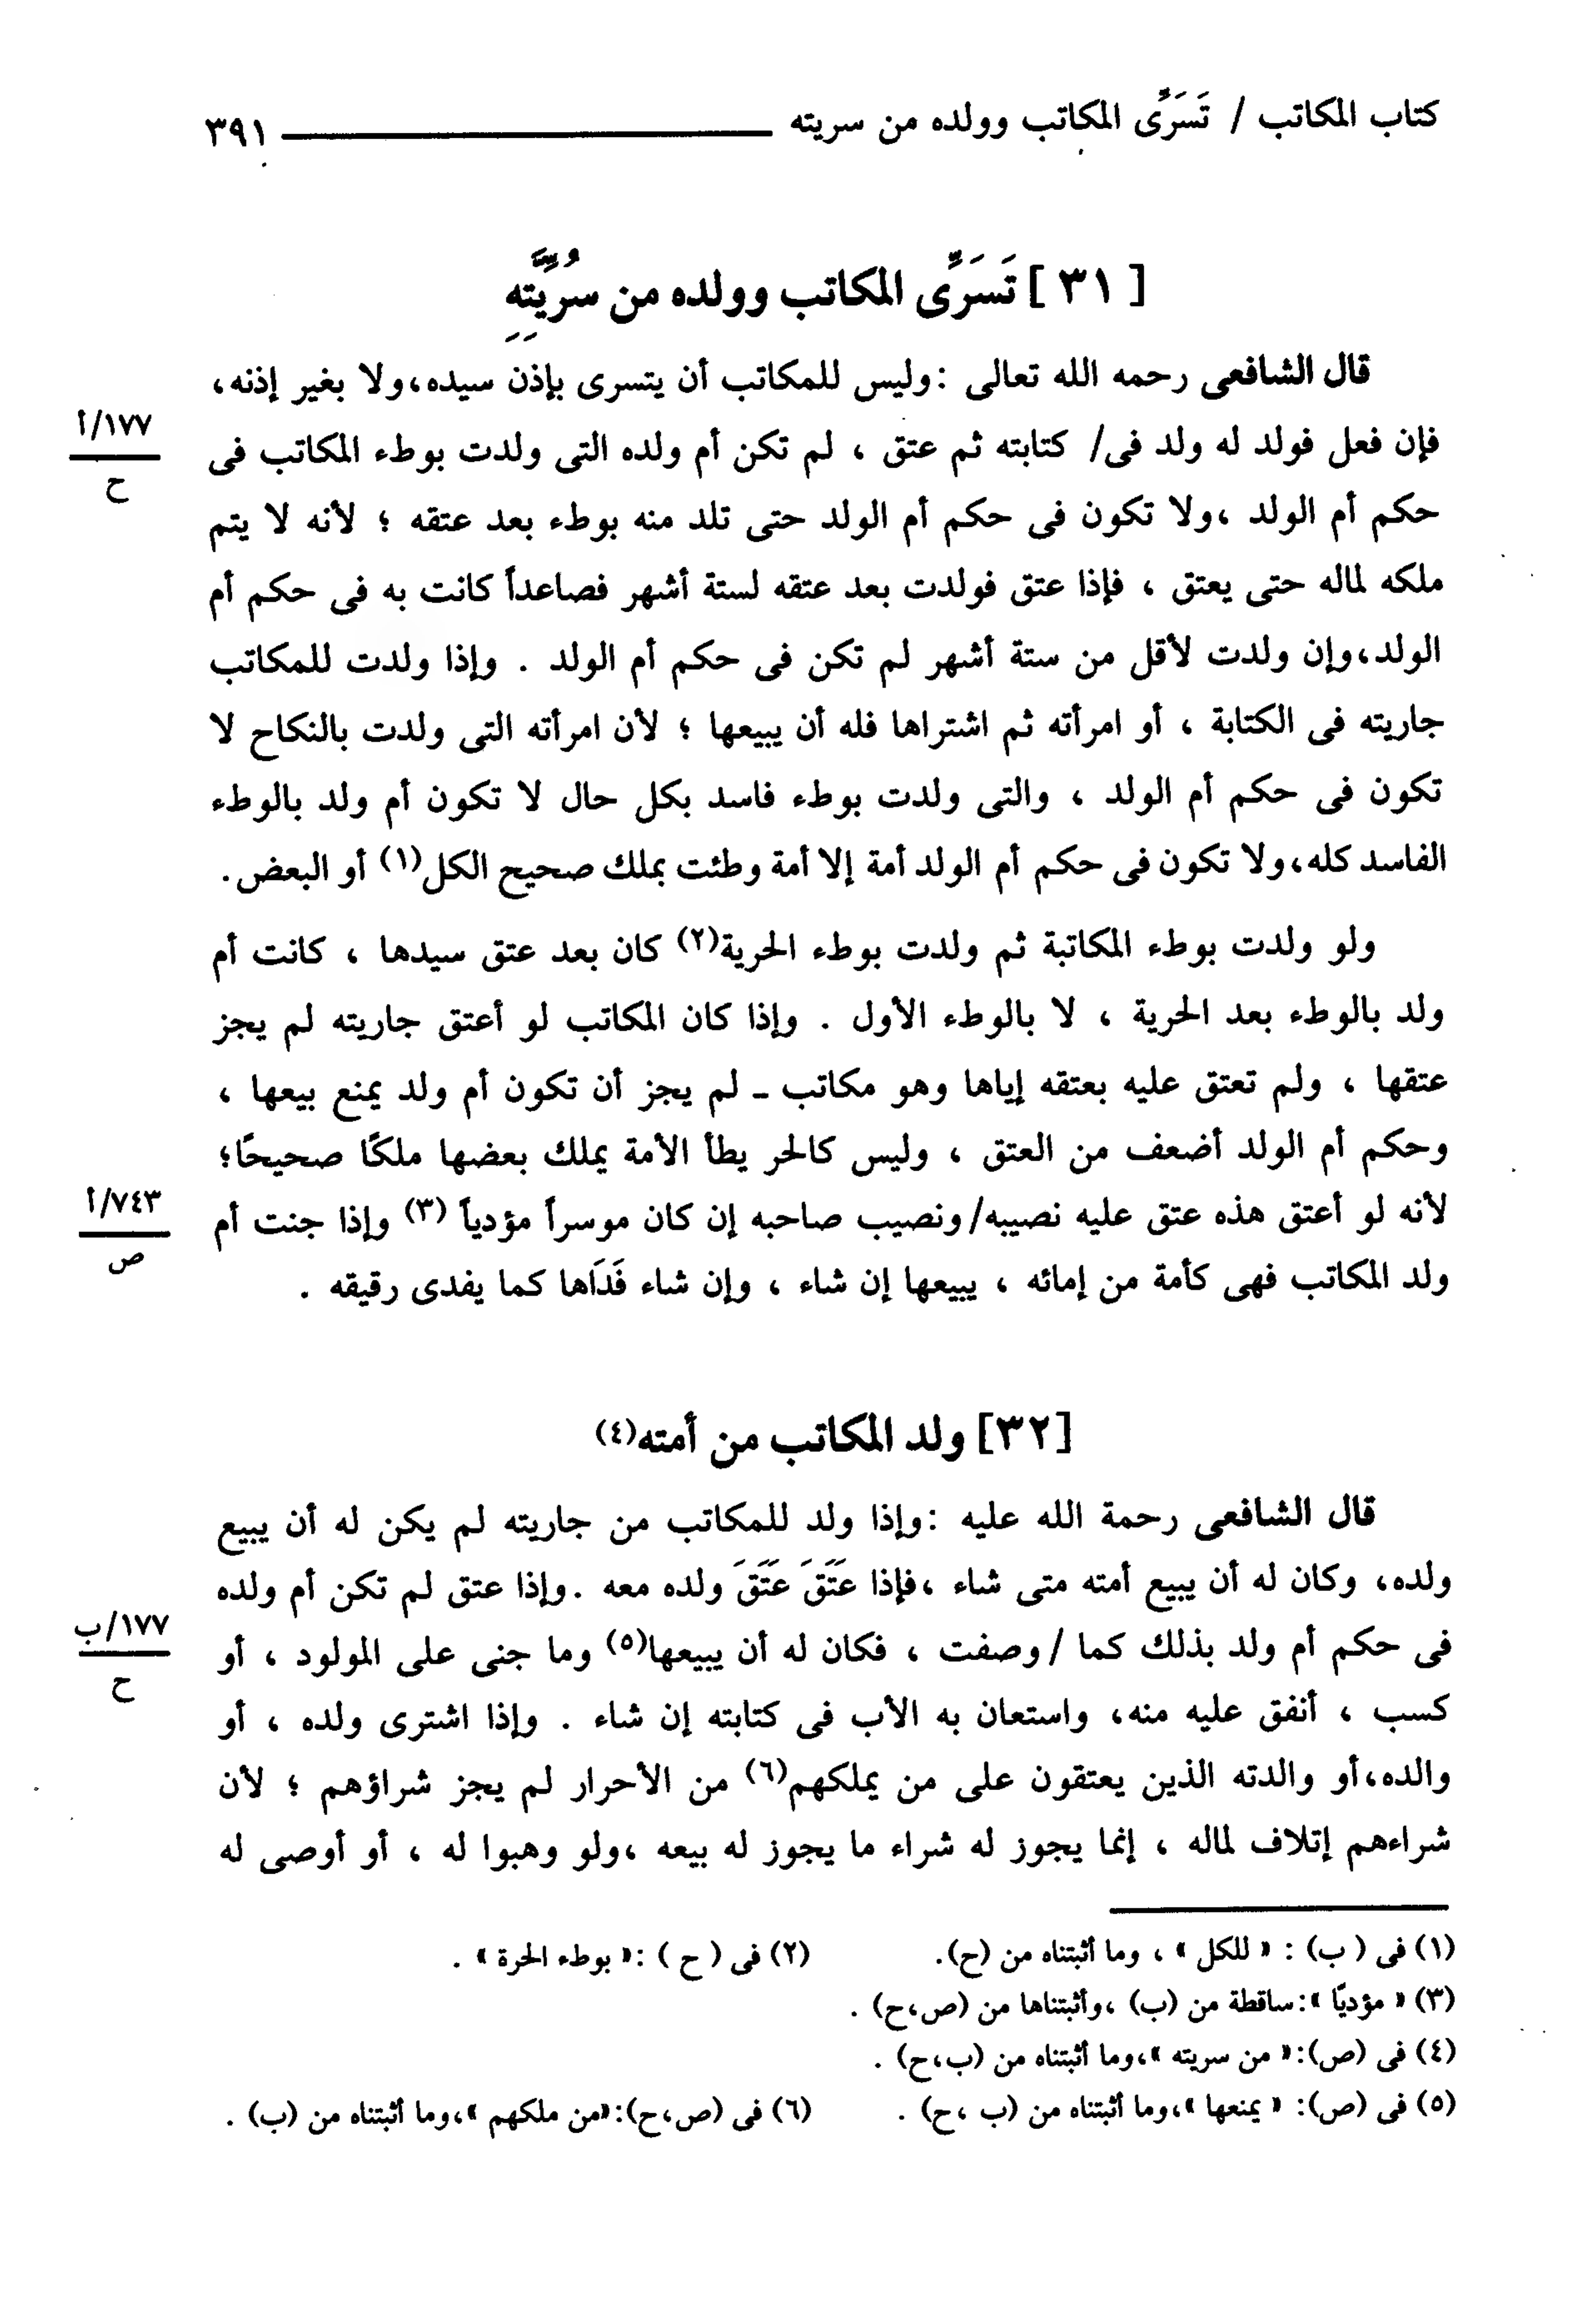 كتاب المكاتب / تَسَرِّى المكاتب وولده من سريته ٣٩١
[ ٣١ ] تَسَرِّى المكاتب وولده من سُرِّيَّتِهِ
قال الشافعى رحمه الله تعالى :وليس للمكاتب أن يتسرى بإذن سيده،ولا بغير إذنه،
١٧٧/أ
فإن فعل فولد له ولد فى/ كتابته ثم عتق ، لم تكن أم ولده التى ولدت بوطء المكاتب فى
ح
حكم أم الولد ،ولا تكون فى حكم أم الولد حتى تلد منه بوطء بعد عتقه ؛ لأنه لا يتم
ملكه لماله حتى يعتق ، فإذا عتق فولدت بعد عتقه لستة أشهر فصاعداً كانت به فى حكم أم
الولد،وإن ولدت لأقل من ستة أشهر لم تكن فى حكم أم الولد . وإذا ولدت للمكاتب
جاريته فى الكتابة ، أو امرأته ثم اشتراها فله أن يبيعها ؛ لأن امرأته التى ولدت بالنكاح لا
تكون فى حكم أم الولد ، والتى ولدت بوطء فاسد بكل حال لا تكون أم ولد بالوطء
الفاسد كله،ولا تكون فى حكم أم الولد أمة إلا أمة وطئت بملك صحيح الكل(١) أو البعض.
ولو ولدت بوطء المكاتبة ثم ولدت بوطء الحرية(٢) كان بعد عتق سيدها ، كانت أم
ولد بالوطء بعد الحرية ، لا بالوطء الأول . وإذا كان المكاتب لو أعتق جاريته لم يجز
عتقها ، ولم تعتق عليه بعتقه إياها وهو مكاتب ـ لم يجز أن تكون أم ولد يمنع بيعها ،
وحكم أم الولد أضعف من العتق ، وليس كالحر يطأ الأمة يملك بعضها ملكًا صحيحًا؛
٧٤٣/أ
لأنه لو أعتق هذه عتق عليه نصيبه/ونصيب صاحبه إن كان موسراً مؤدياً (٣) وإذا جنت أم
ص
ولد المكاتب فهى كأمة من إمائه ، يبيعها إن شاء ، وإن شاء فَدَاها كما يفدى رقيقه .
[٣٢] ولد المكاتب من أمته(٤)
قال الشافعى رحمة الله عليه :وإذا ولد للمكاتب من جاريته لم يكن له أن يبيع
ولده، وكان له أن يبيع أمته متى شاء ،فإذا عَتَقَ عَتَقَ ولده معه .وإذا عتق لم تكن أم ولده
١٧٧/ب
فى حكم أم ولد بذلك كما /وصفت ، فكان له أن يبيعها(٥) وما جنى على المولود ، أو
ح
كسب ، أنفق عليه منه، واستعان به الأب فى كتابته إن شاء . وإذا اشترى ولده ، أو
والده،أو والدته الذين يعتقون على من يملكهم(٦) من الأحرار لم يجز شراؤهم ؛ لأن
شراءهم إتلاف لماله ، إنما يجوز له شراء ما يجوز له بيعه ،ولو وهبوا له ، أو أوصى له
(١) فى ( ب) : « للكل » ، وما أثبتناه من (ح). (٢) فى ( ح ) :« بوطء الحرة » .
(٣) « مؤديًا »:ساقطة من (ب) ،وأثبتناها من (ص،ح) .
(٤) فى (ص):« من سريته »،وما أثبتناه من (ب،ح) .
(٥) فى (ص): « يمنعها »،وما أثبتناه من (ب ،ح) . (٦) فى (ص،ح):«من ملكهم »،وما أثبتناه من (ب) .